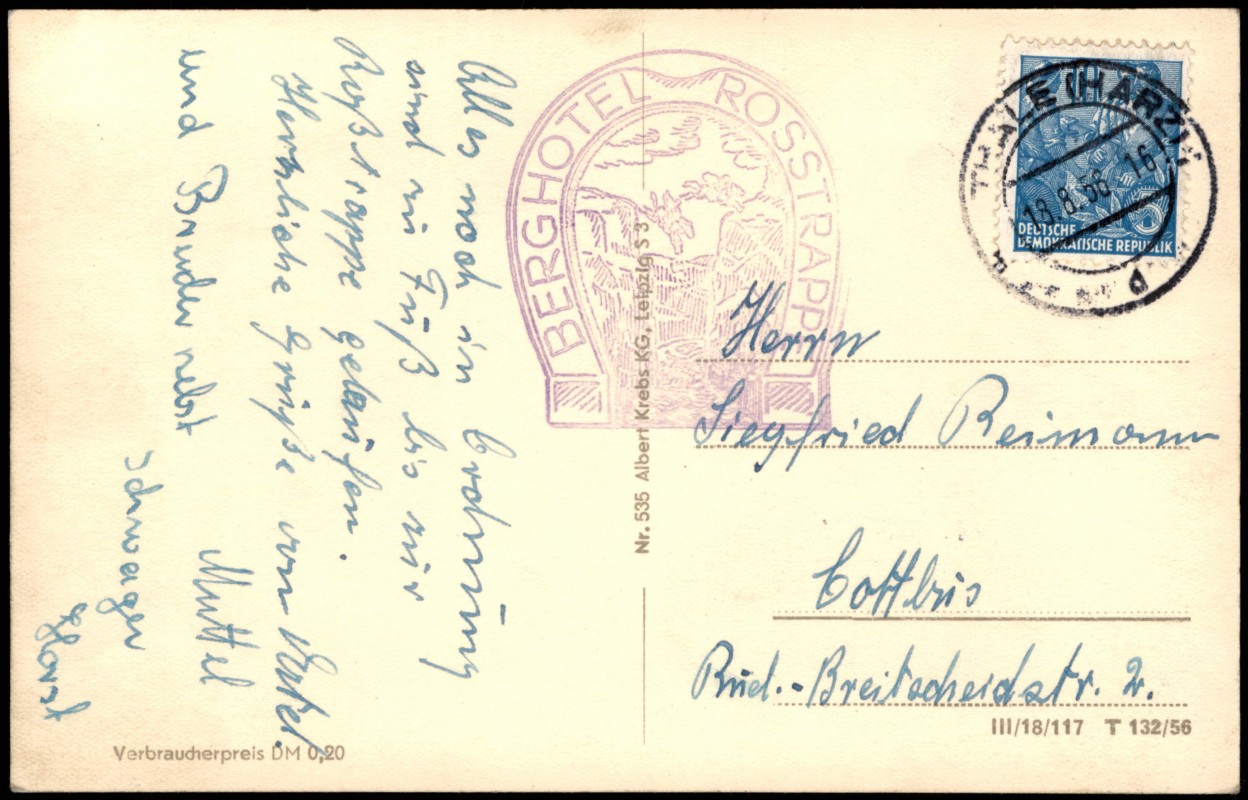 Alles noch in Ordnung
sind zu Fuß bis zur
Roßtrappe gelaufen.
Herzliche Grüße von Vatel.
Muttel
und Bruder nebst
Schwager
Horst
BERGHOTEL ROSSTRAPPE
Nr. 535 Albert Krebs KG, Leipzig S 3
THALE (HARZ)
18.8.56 16
DEUTSCHE
DEMOKRATISCHE REPUBLIK
5
Herrn
Siegfried Reimann
Cottbus
Rud.-Breitscheidstr. 2.
III/18/117 T 132/56
Verbraucherpreis DM 0,20